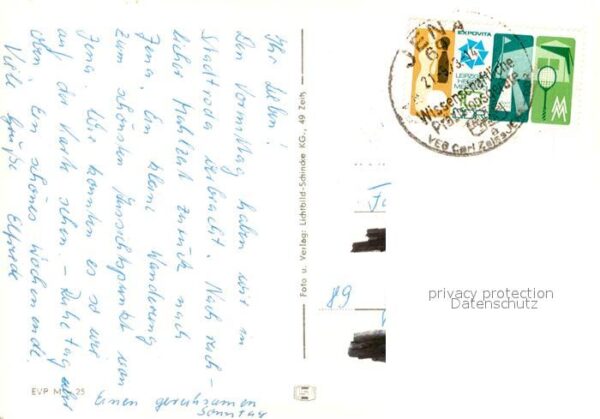 Ihr Lieben!
Den Vormittag haben wir in
Stadtroda verbracht. Nach reich-
licher Mahlzeit zurück nach
Jena. Ein kleine Wanderung
zum schönsten Aussichtspunkt von
Jena. Wie konnten es so wie
auf der Karte sehen. - Ruhetag
oben! Ein schönes Wochenende
Viele Grüße Elfriede
Einen geruhsamen
Sonntag
EVP M 25
Foto u. Verlag: Lichtbild-Schincke KG., 49 Zeitz
JENA
69
EXPOVITA
LEIPZIGER
Wissenschaftliche
VEB Carl Zeiss JENA
89
privacy protection
Datenschutz